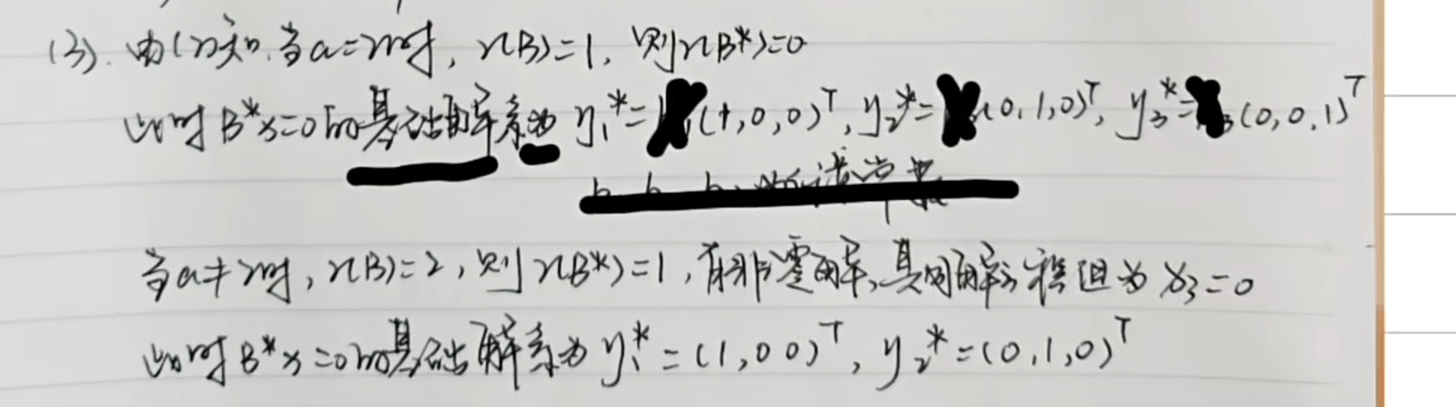 (3). 由(2)知,当a=2时, r(B)=1, 则r(B*)=0
此时B*x=0的基础解系为 y₁*=(1,0,0)ᵀ, y₂*=(0,1,0)ᵀ, y₃*=(0,0,1)ᵀ
当a≠2时, r(B)=2, 则r(B*)=1, 有非零解,其同解方程组为 x₃=0
此时B*x=0的基础解系为 y₁*=(1,0 0)ᵀ, y₂*=(0,1,0)ᵀ